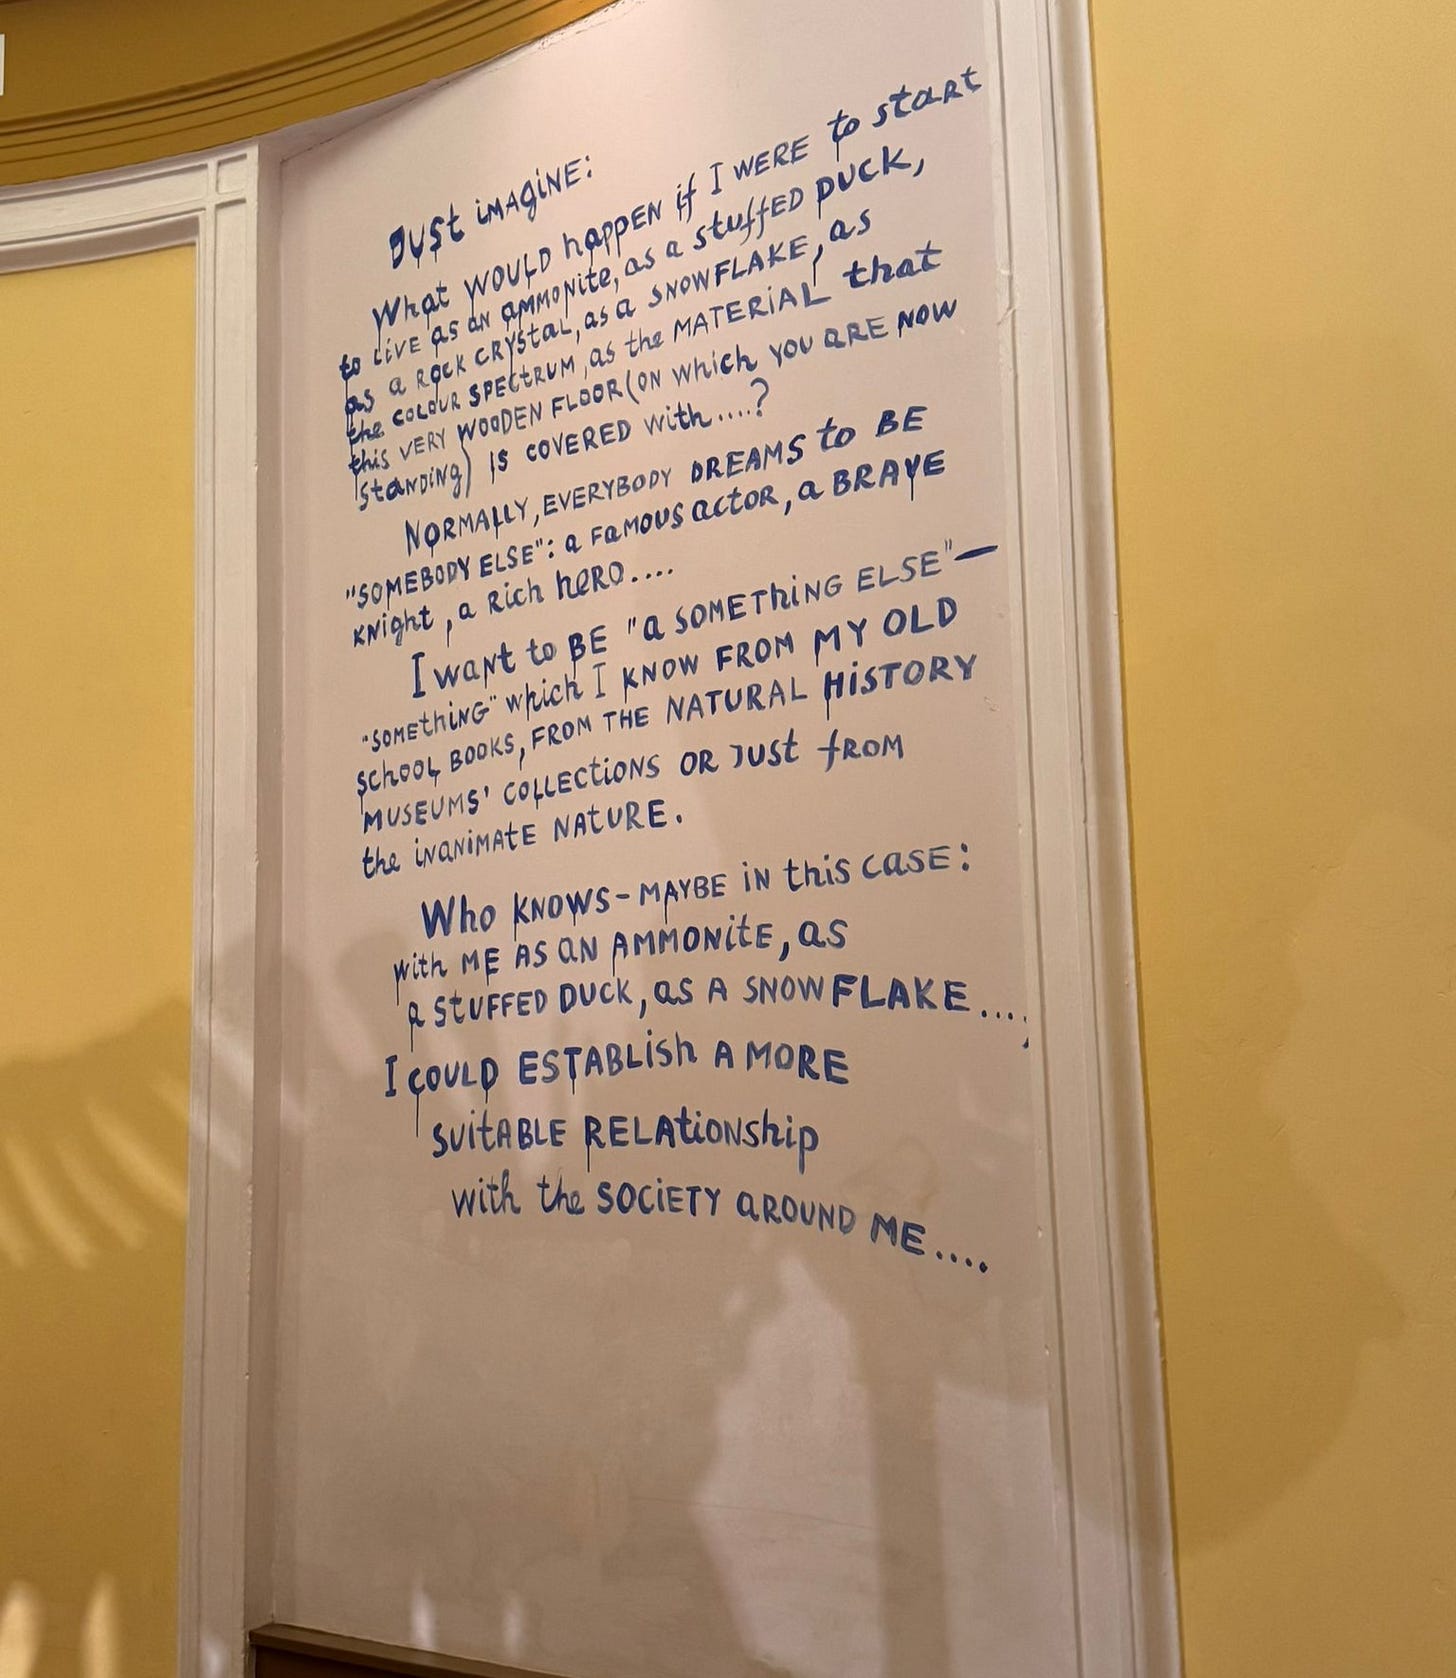 Just imagine:
What would happen if I were to start
to live as an ammonite, as a stuffed duck,
as a rock crystal, as a snowflake, as
the colour spectrum, as the material that
this very wooden floor (on which you are now
standing) is covered with....?
Normally, everybody dreams to be
"somebody else": a famous actor, a brave
knight, a rich hero....
I want to be "a something else" —
"something" which I know from my old
school books, from the natural history
museums' collections or just from
the inanimate nature.
Who knows - maybe in this case:
with me as an ammonite, as
a stuffed duck, as a snowflake....,
I could establish a more
suitable relationship
with the society around me....